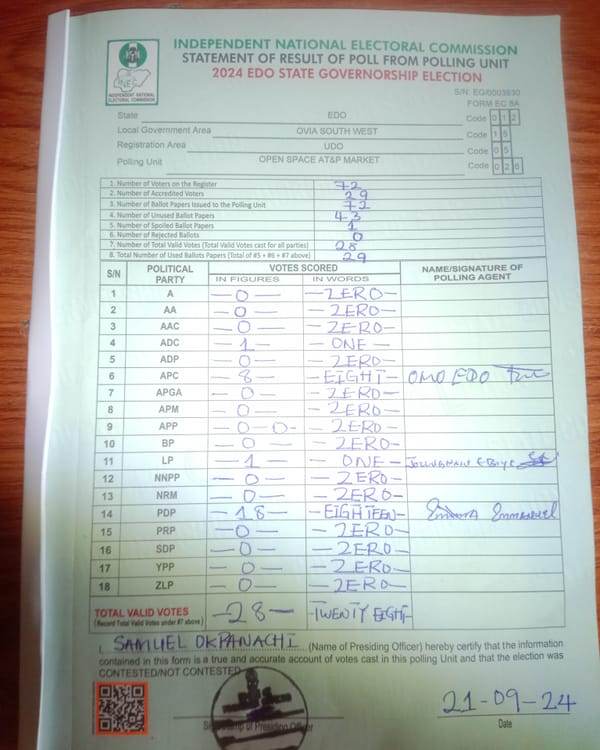 INDEPENDENT NATIONAL ELECTORAL COMMISSION
STATEMENT OF RESULT OF POLL FROM POLLING UNIT
2024 EDO STATE GOVERNORSHIP ELECTION
INEC
INDEPENDENT NATIONAL
ELECTORAL COMMISSION
S/N: EG/0003930
FORM EC 8A
State EDO Code 0 1 2
Local Government Area OVIA SOUTH WEST Code 1 5
Registration Area UDO Code 0 5
Polling Unit OPEN SPACE AT&P MARKET Code 0 2 0
1. Number of Voters on the Register 72
2. Number of Accredited Voters 29
3. Number of Ballot Papers Issued to the Polling Unit 72
4. Number of Unused Ballot Papers 43
5. Number of Spoiled Ballot Papers 1
6. Number of Rejected Ballots 0
7. Number of Total Valid Votes (Total Valid Votes cast for all parties) 28
8. Total Number of Used Ballots Papers (Total of #5 + #6 + #7 above) 29
S/N POLITICAL PARTY VOTES SCORED NAME/SIGNATURE OF POLLING AGENT
IN FIGURES IN WORDS
1 A -0- -ZERO-
2 AA -0- -ZERO-
3 AAC -0- -ZERO-
4 ADC -1- -ONE-
5 ADP -0- -ZERO-
6 APC -8- -EIGHT- OMO EDO
7 APGA -0- -ZERO-
8 APM -0- -ZERO-
9 APP -0-0- -ZERO-
10 BP -0- -ZERO-
11 LP -1- -ONE-
12 NNPP -0- -ZERO-
13 NRM -0- -ZERO-
14 PDP -18- -EIGHTEEN- Emmanuel
15 PRP -0- -ZERO-
16 SDP -0- -ZERO-
17 YPP -0- -ZERO-
18 ZLP -0- -ZERO-
TOTAL VALID VOTES -28- TWENTY EIGHT-
(Record Total Valid Votes under #7 above)
I, SAMUEL OKPANACHI (Name of Presiding Officer) hereby certify that the information
contained in this form is a true and accurate account of votes cast in this polling Unit and that the election was
CONTESTED/NOT CONTESTED
21-09-24
of Presiding Officer
Date